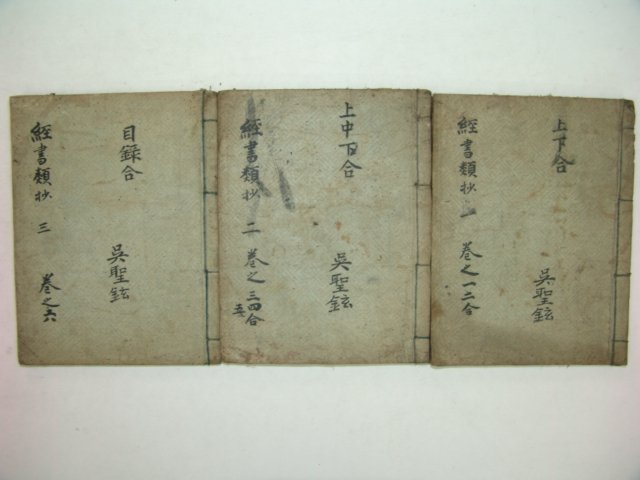 經書類抄 一 卷之一二合
上下合
吳聖鉉
經書類抄 二 卷之三四五合
上中下合
吳聖鉉
經書類抄 三 卷之六
目錄合
吳聖鉉